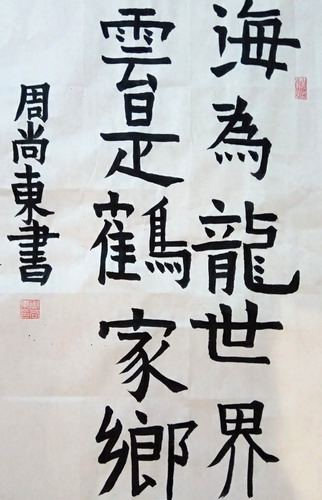 海為龍世界
雲是鶴家鄉
周尚東書